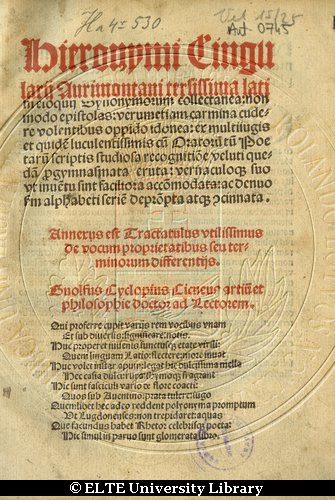 Ha 4° 530
Vet 15/25
Ant. 0745
Hieronymi Cingu
larij Aurimontani tersissima lati
ni eloquij Synonymorum collectanea: non
modo epistolas: verumetiam carmina cude
re volentibus oppido idonea: ex multiiugis
et quidē luculentissimis cū Oratorū tū Poe
tarū scriptis studiosa recognitiōe, veluti que
dā ꝓgymnasmata, eruta: vernaculoq; suo
vt inuētu sint faciliora accōmodata: ac denuo
ſm alphabeti seriē deprōpta atq; ꝯcinnata.
Annexus est Tractatulus vtilissimus
de vocum proprietatibus seu ter-
minorum differentijs.
Gnolfus Cyclopius Cicneus artiū et
philosophie doctor ad Lectorem.
Qui proferre cupit varijs rem vocibus vnam
Et sub diuersis significare notis.
Huc properet iuuenis functusq; etate virili:
Quem linguam Latio flectere more iuuat
Huc volet instar apum: legat hic dulcissima mella
Nec casia dulci rupta thymoq; fragrant
Hic sunt fasciculi vario ex flore coacti:
Quos sub Auentino prata tulere iugo
Quemlibet hec adeo reddent polyonyma promptum
Vt Lugdonenses non trepidaret: aquas
Que facundus habet Rhetor celebrisq; poeta:
Hic simul in paruo sunt glomerata libro.
© ELTE University Library